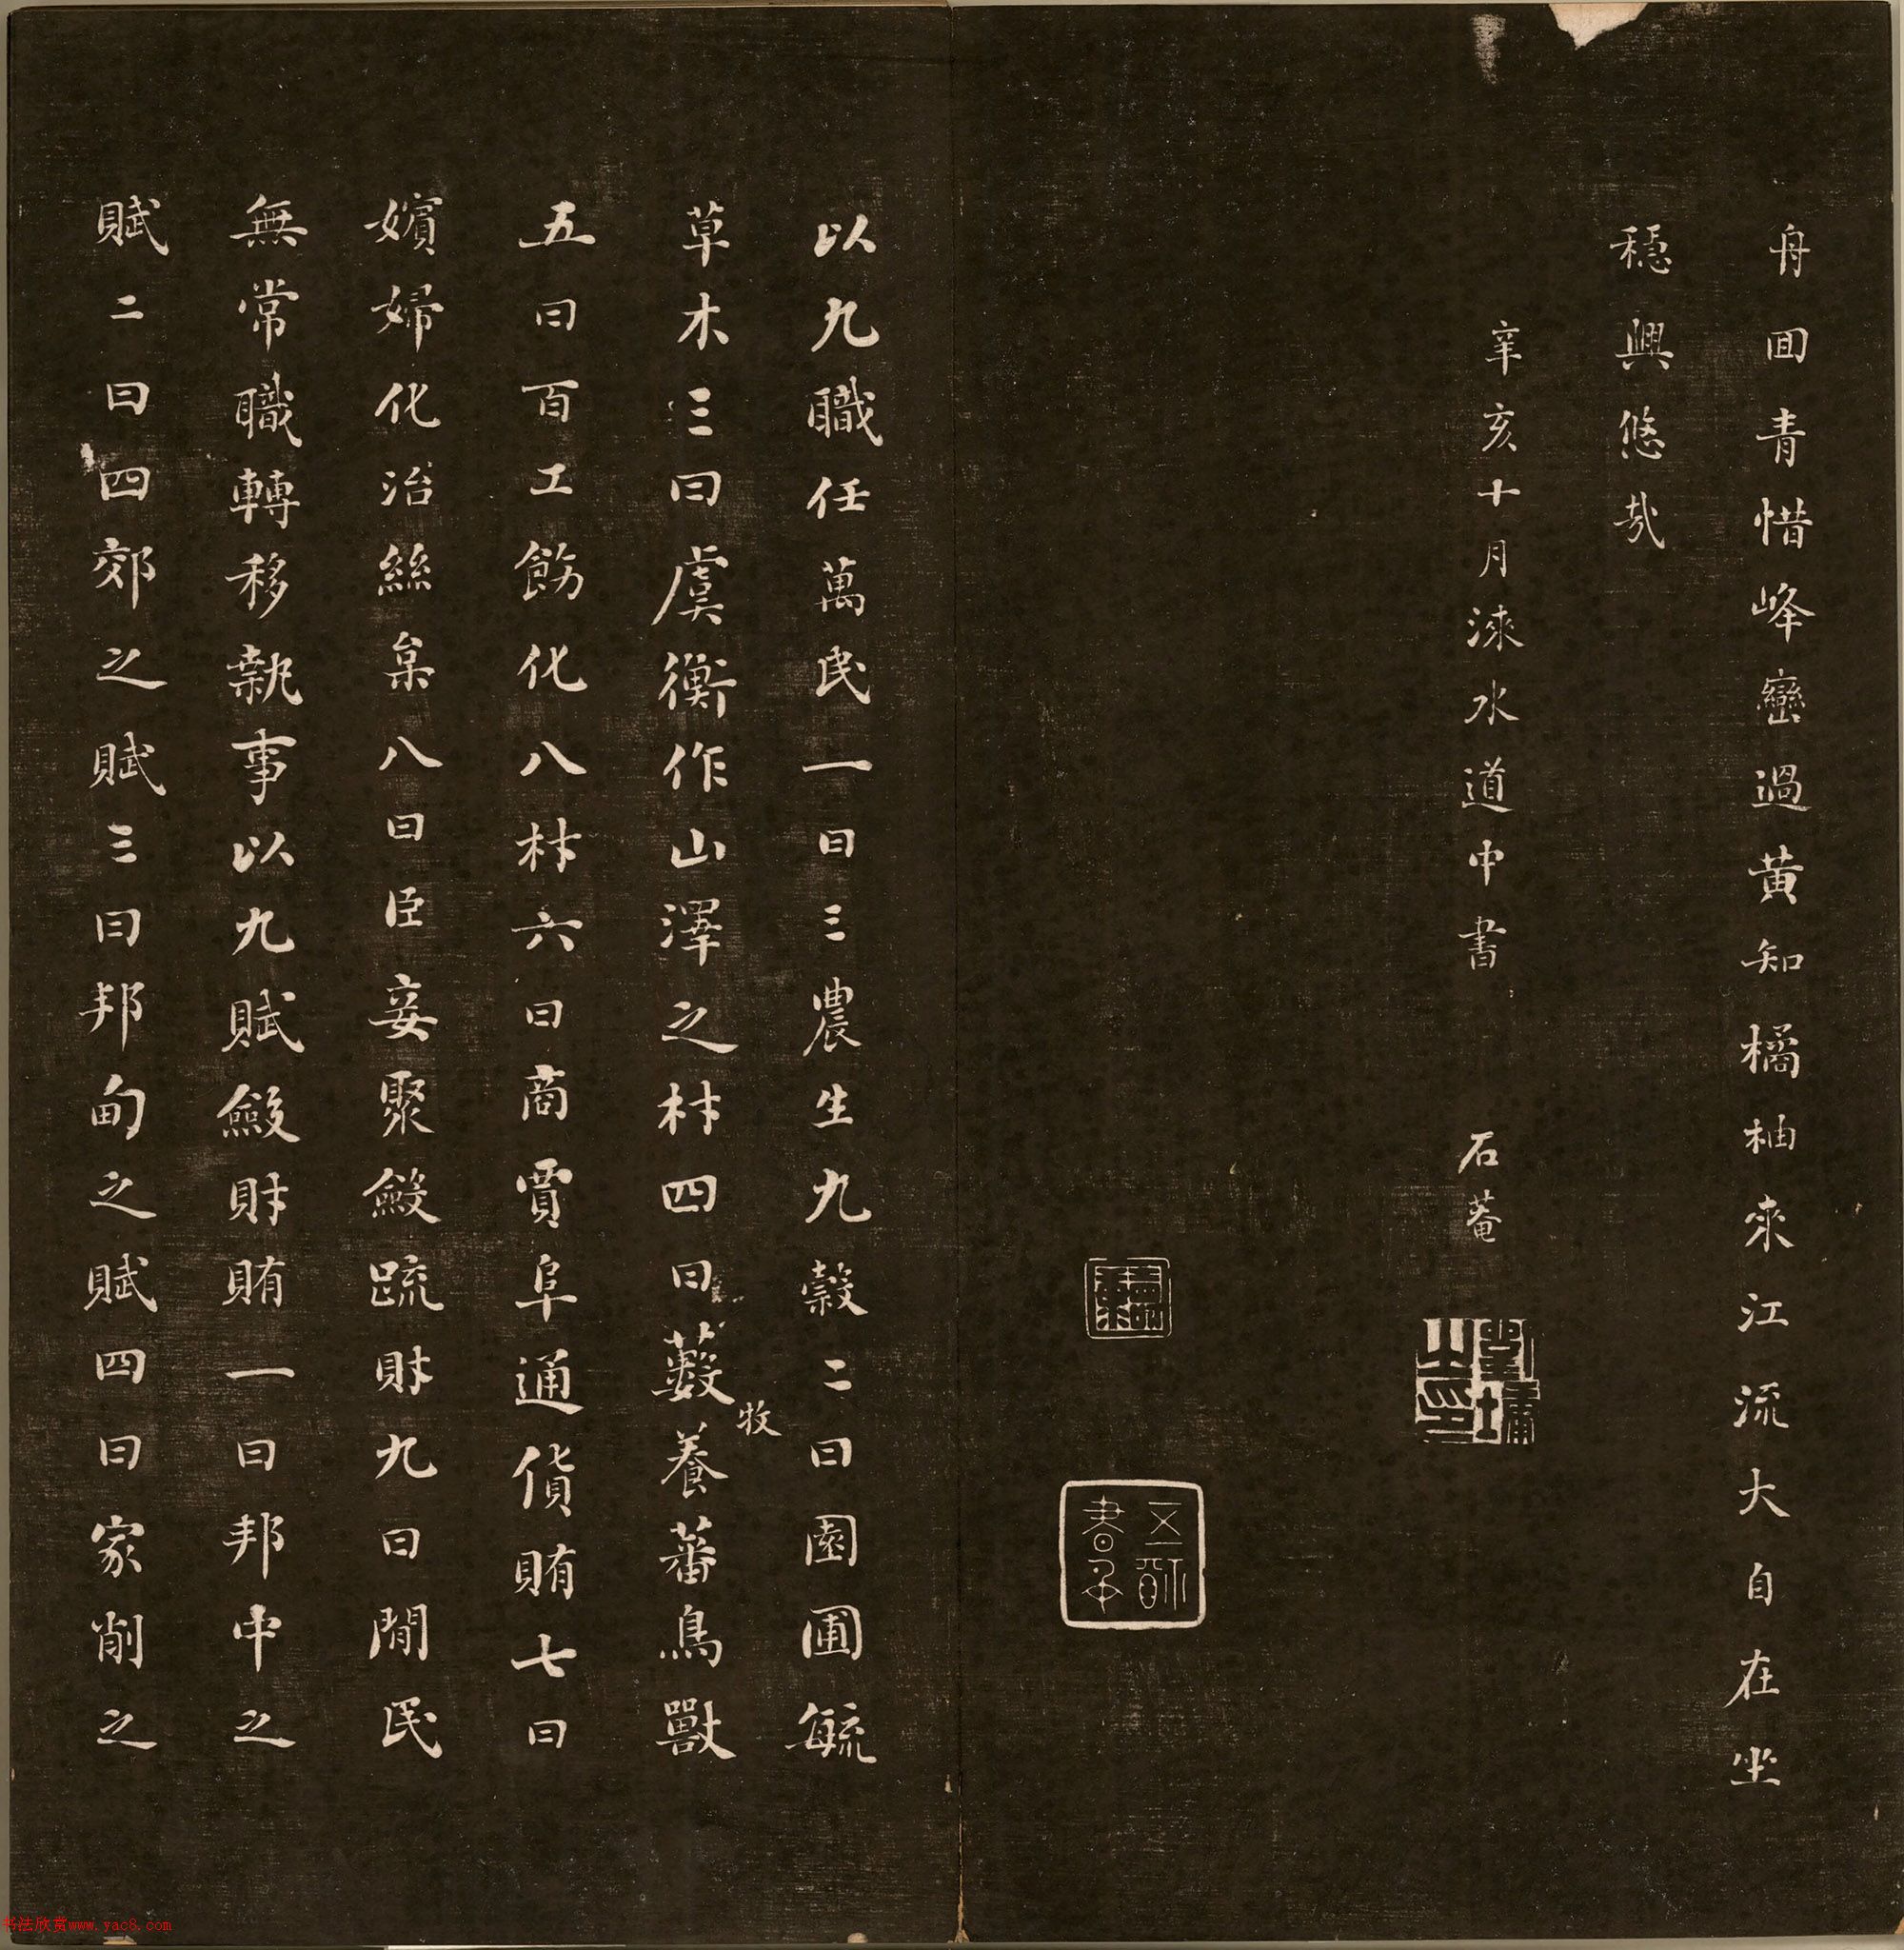 舟回青惜峰巒過黄知橘柚來江流大自在坐
穩興悠哉
辛亥十月涑水道中書 石菴
劉墉之印
以九職任萬民一曰三農生九穀二曰園圃毓
草木三曰虞衡作山澤之材四曰藪養蕃鳥獸
牧
五曰百工飭化八材六曰商賈阜通貨賄七曰
嬪婦化治絲枲八曰臣妾聚斂疏財九曰閒民
無常職轉移執事以九賦斂財賄一曰邦中之
賦二曰四郊之賦三曰邦甸之賦四曰家削之
书法欣赏www.yac8.com